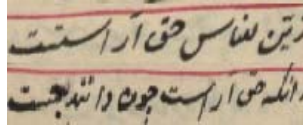 زین للناس حق آراستست
زانکه حق آراست چون دانند جست